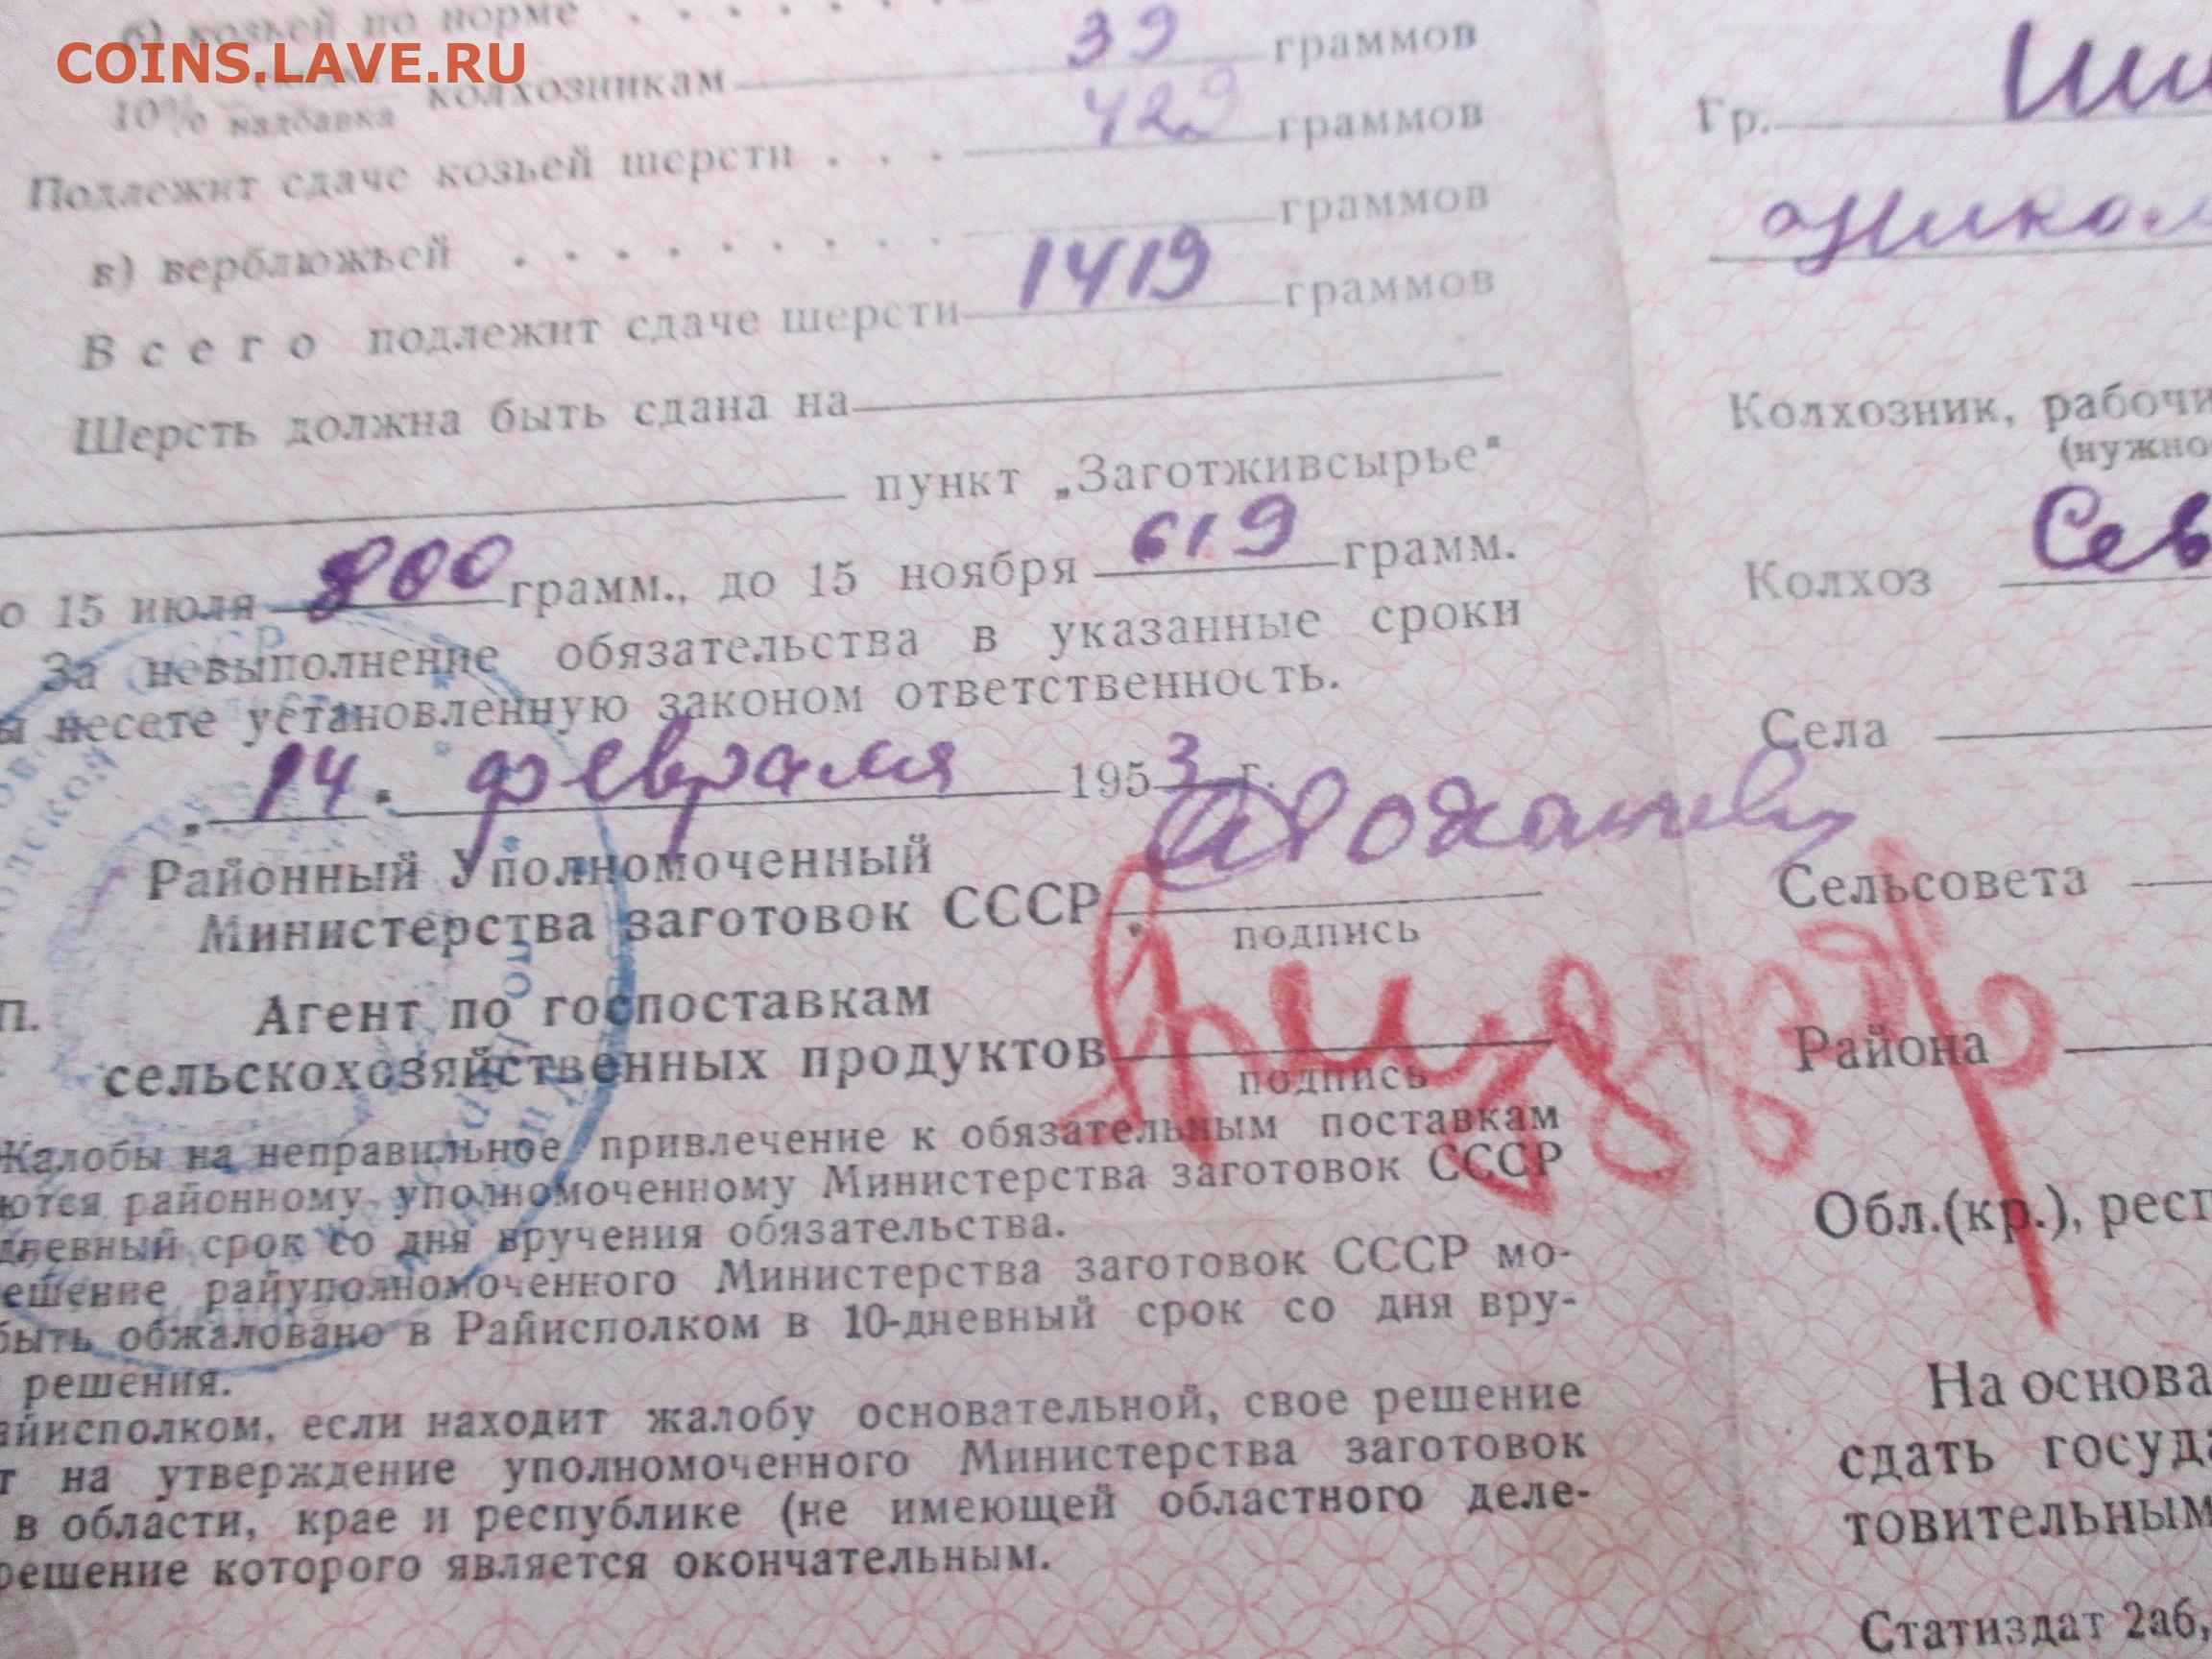 COINS.LAVE.RU
б) козьей по норме . . . . . .
10% надбавка колхозникам 39 граммов
Подлежит сдаче козьей шерсти . . . 429 граммов
в) верблюжьей . . . . . . . . . граммов
Всего подлежит сдаче шерсти 1419 граммов
Шерсть должна быть сдана на
пункт „Заготживсырье"
о 15 июля 800 грамм., до 15 ноября 619 грамм.
За невыполнение обязательства в указанные сроки
ы несете установленную законом ответственность.
„14 " февраля 1953 г.
Районный Уполномоченный
Министерства заготовок СССР
подпись
П. Агент по госпоставкам
сельскохозяйственных продуктов
подпись
Жалобы на неправильное привлечение к обязательным поставкам
ются районному уполномоченному Министерства заготовок СССР
дневный срок со дня вручения обязательства.
ешение райуполномоченного Министерства заготовок СССР мо-
быть обжаловано в Райисполком в 10-дневный срок со дня вру-
решения.
айисполком, если находит жалобу основательной, свое решение
т на утверждение уполномоченного Министерства заготовок
в области, крае и республике (не имеющей областного деле-
решение которого является окончательным.
Гр. Ши
Никол
Колхозник, рабочи
(нужно
Колхоз Сев
Села
Сельсовета
Района
Обл.(кр.), респ
На основа
сдать госуда
товительным
Статиздат 2аб,